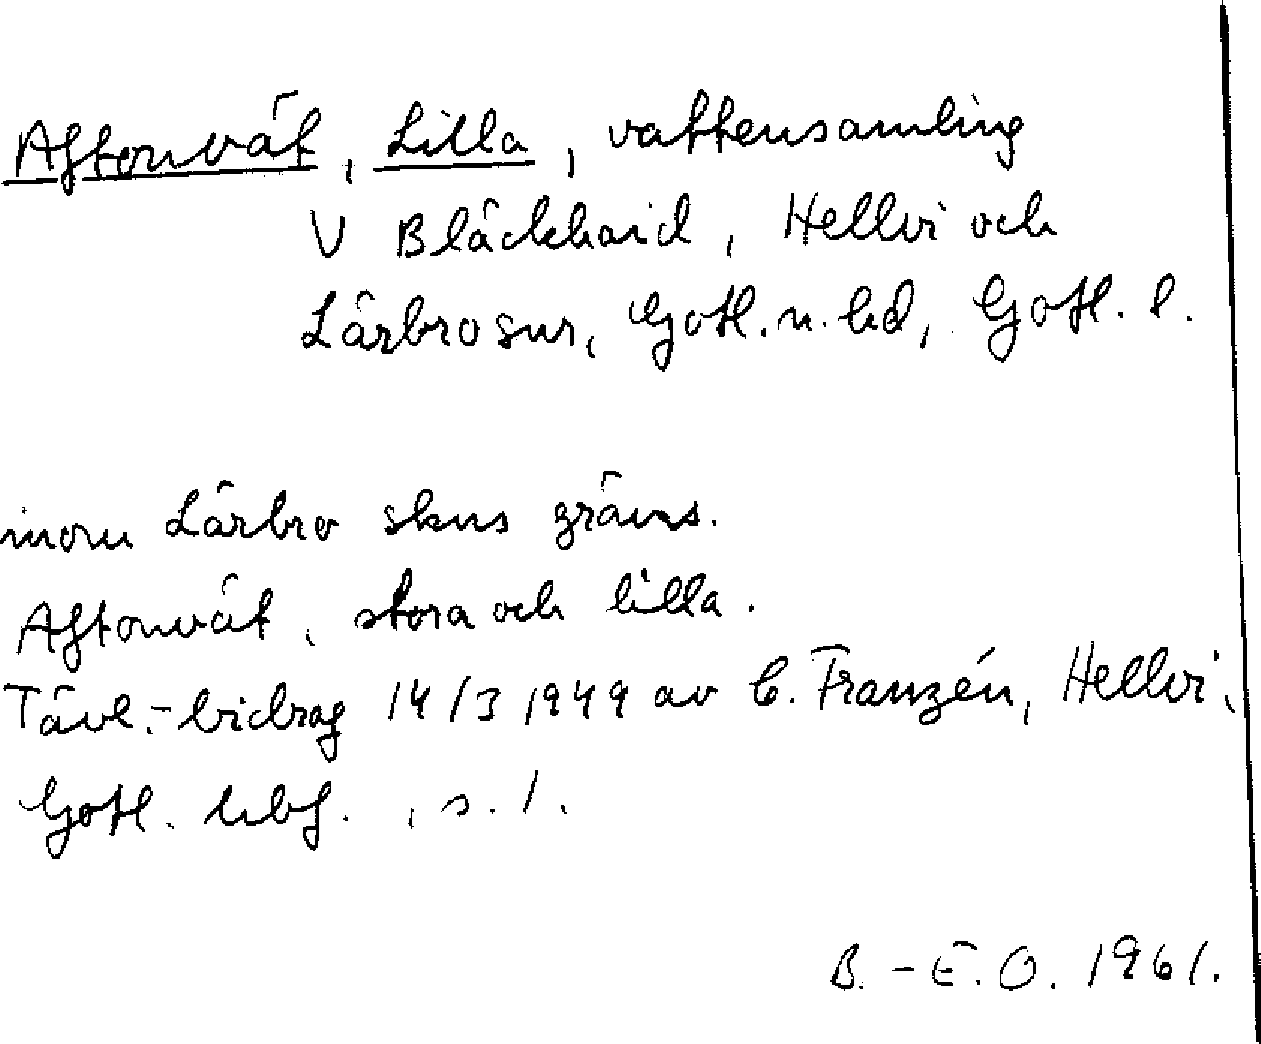 Aftonvät, Lilla, vattensamling
V Bläckhaid, Hellvi och
Lärbro snr, Gotl. n. hd, Gotl. l.
inom Lärbro skns gräns.
Aftonvät, stora och lilla.
Tävl.-bidrag 14/3 1949 av C. Franzén, Hellvi,
Gotl. hbf., s. 1.
B.-E. O. 1961.